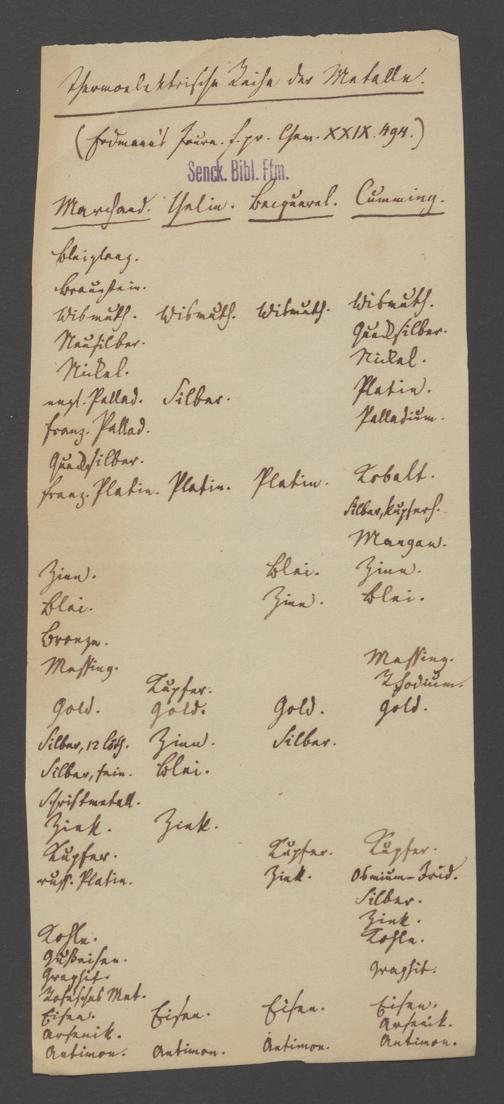 Thermoelektrische Reihe der Metalle.
(Erdmann's Journ. f. pr. Chem. XXIX. 494.)
Senck. Bibl. Ffm.
Marchand. Yelin. Becquerel. Cumming.
Bleiglanz.
Braunstein.
Wismuth. Wismuth. Wismuth. Wismuth.
Neusilber. Quecksilber.
Nickel. Nickel.
engl. Pallad. Silber. Platin.
franz. Pallad. Palladium.
Quecksilber.
franz. Platin. Platin. Platin. Kobalt.
Silber, kupferh.
Mangan.
Zinn. Blei. Zinn.
Blei. Zinn. Blei.
Bronze.
Messing. Messing.
Kupfer. Rhodium.
Gold. Gold. Gold. Gold.
Silber, 12 löth. Zinn. Silber.
Silber, fein. Blei.
Schriftmetall.
Zink. Zink.
Kupfer. Kupfer. Kupfer.
russ. Platin. Zink. Osmium-Irid.
Silber.
Zink.
Kohle. Kohle.
Gußeisen.
Graphit. Graphit.
Rose'sches Met.
Eisen. Eisen. Eisen. Eisen.
Arsenik. Arsenik.
Antimon. Antimon. Antimon. Antimon.